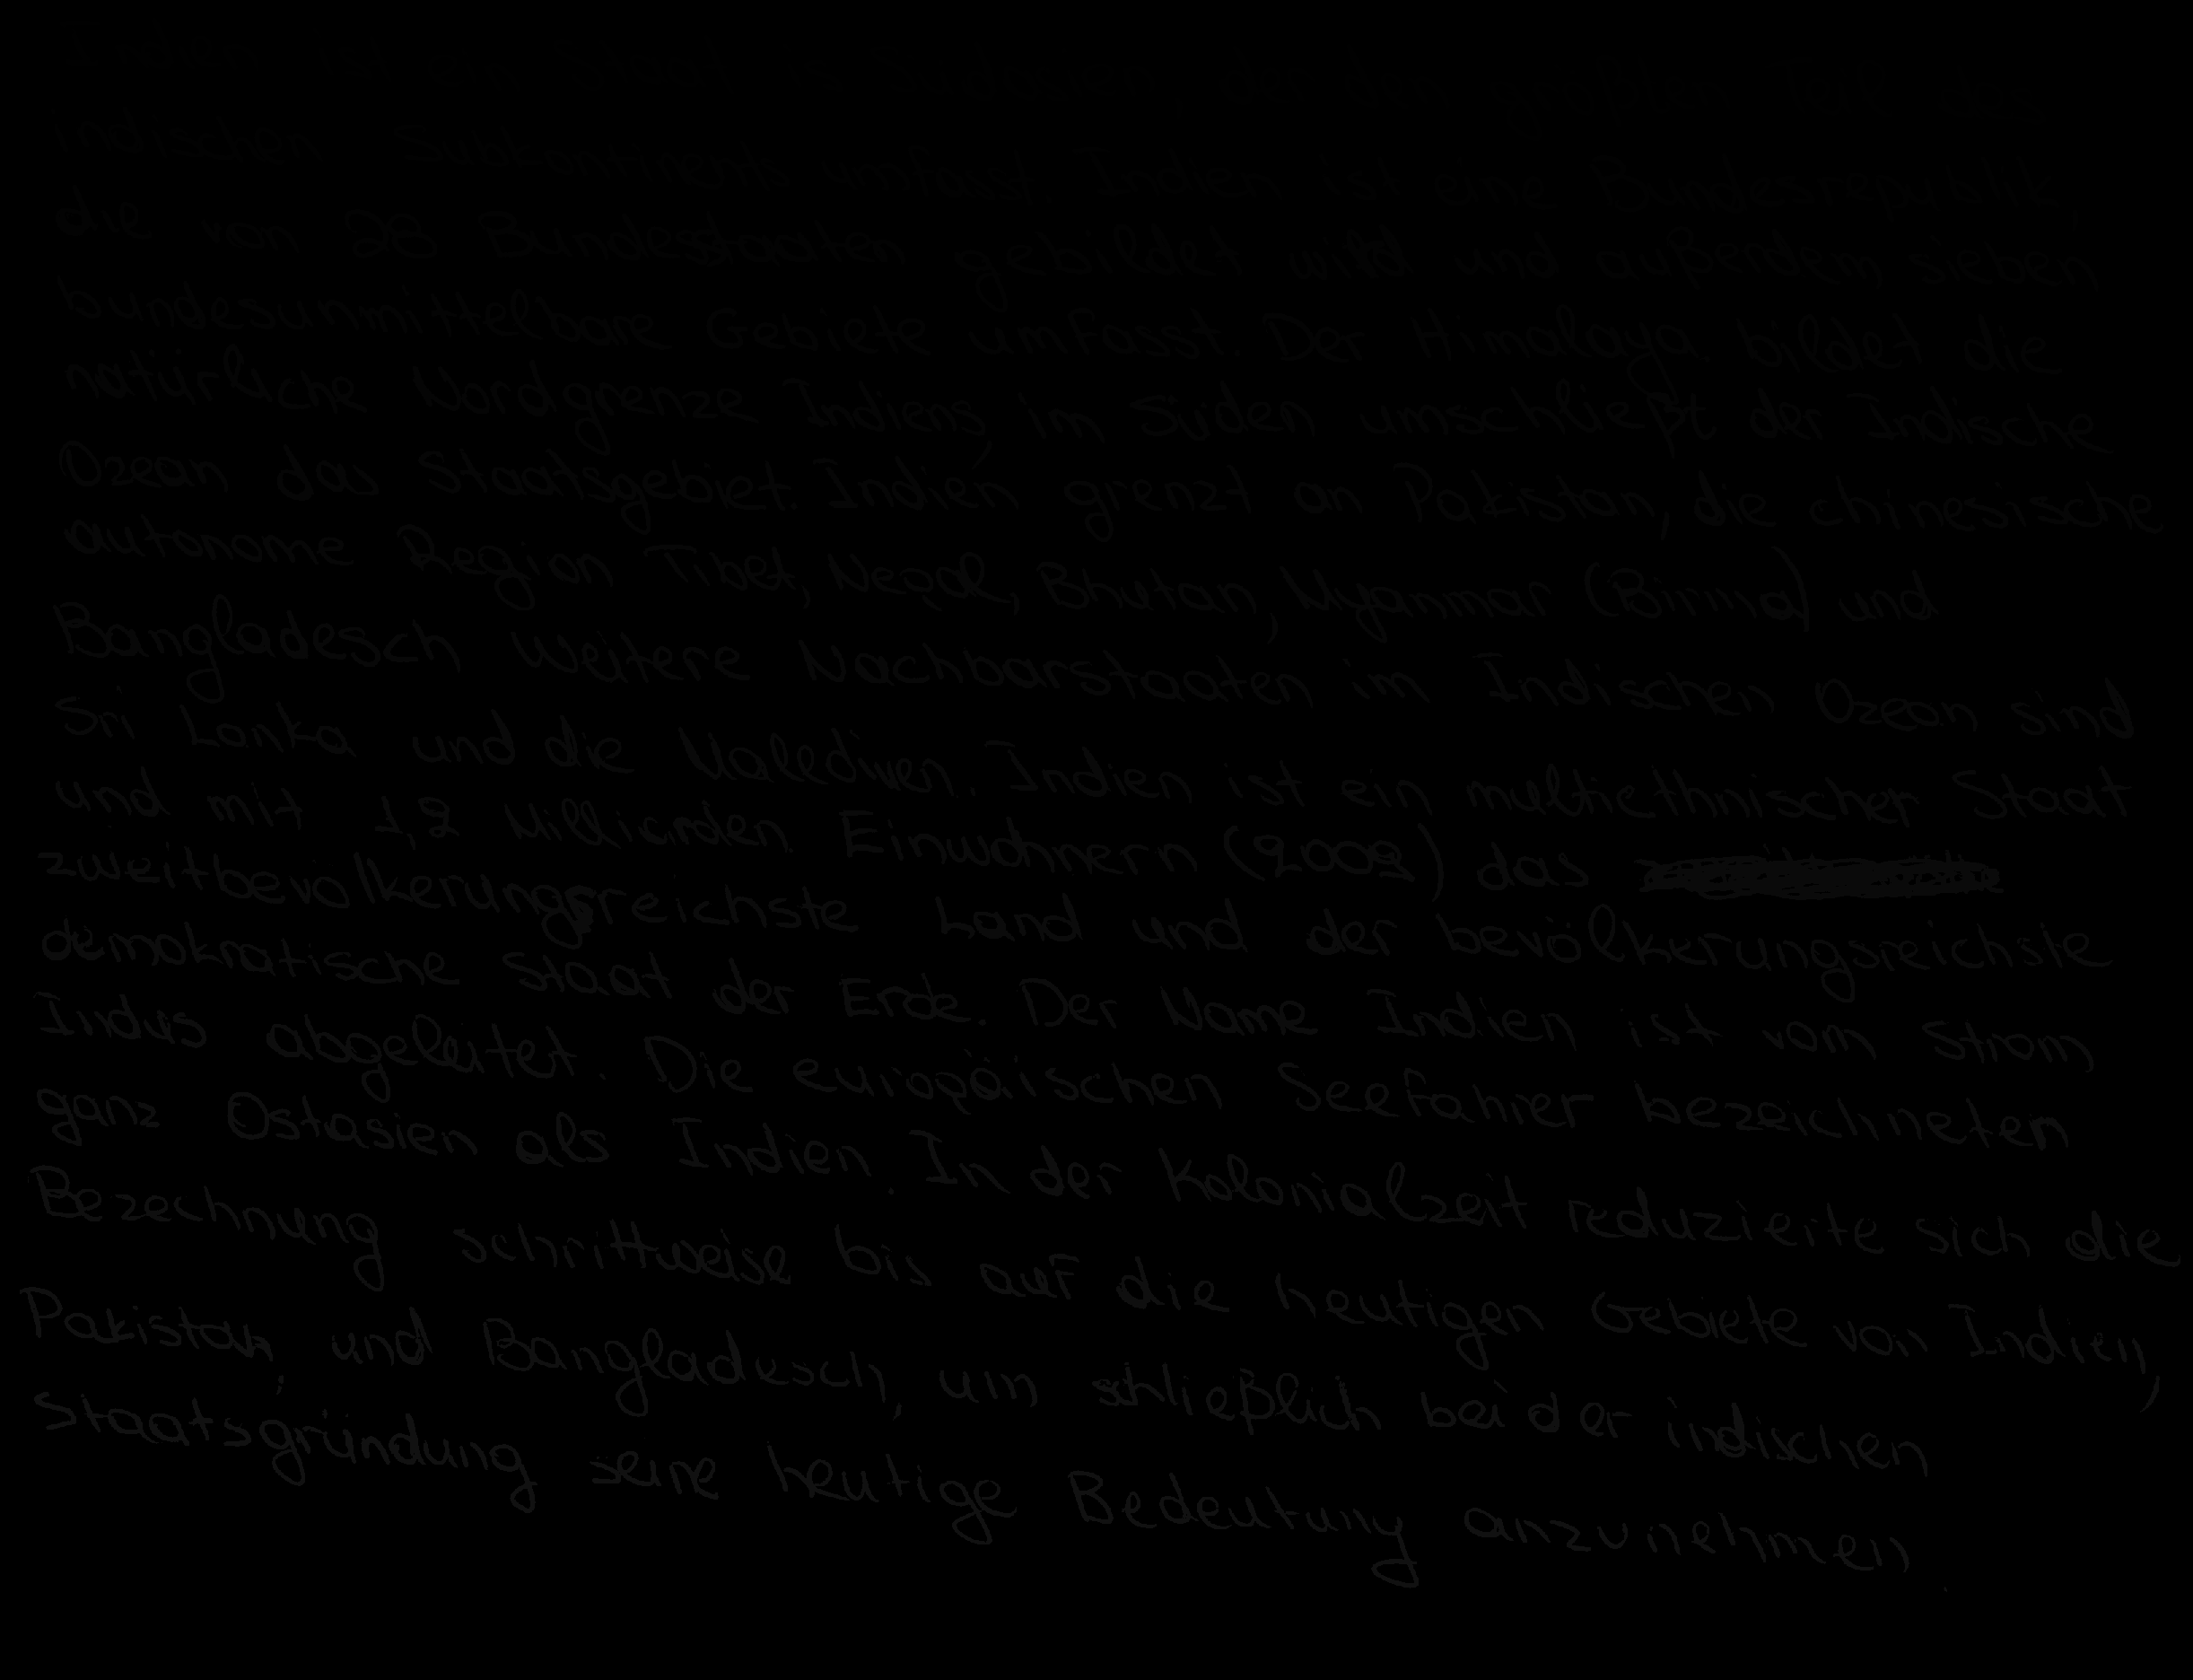 Indien ist ein Staat in Südasien, der den größten Teil des
indischen Subkontinents umfasst. Indien ist eine Bundesrepublik,
die von 28 Bundesstaaten gebildet wird und außerdem sieben
bundesunmittelbare Gebiete umfasst. Der Himalaya bildet die
natürliche Nordgrenze Indiens, im Süden umschließt der Indische
Ozean das Staatsgebiet. Indien grenzt an Pakistan, die chinesische
autonome Region Tibet, Nepal, Bhutan, Myanmar (Birma) und
Bangladesch weitere Nachbarstaaten im Indischen Ozean sind
Sri Lanka und die Malediven. Indien ist ein multiethnischer Staat
und mit 1,2 Milliarden Einwohnern (2008) das
zweitbevölkerungsreichste Land und der bevölkerungsreichste
demokratische Staat der Erde. Der Name Indien ist vom Strom
Indus abgeleitet. Die europäischen Seefahrer bezeichneten
ganz Ostasien als Indien. In der Kolonialzeit reduzierte sich die
Bezechnung schrittweise bis auf die heutigen Gebiete von Indien,
Pakistan, und Bangladesch, um schließlich bei der indischen
Staatsgründung seine heutige Bedeutung anzunehmen.